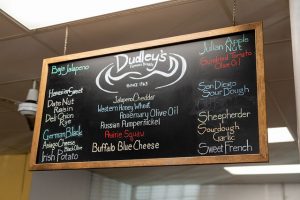 Baja Jalapeno
Homestyle Sweet
Date Nut
Raisin
Deli Onion
Rye
German Black
Asiago Cheese
Black Olive
Irish Potato
Dudley's
Famous Breads
SINCE 1963
Jalapeno Cheddar
Western Honey Wheat
Rosemary Olive Oil
Russian Pumpernickel
Prairie Squaw
Buffalo Blue Cheese
Julian Apple
Nut
Sundried Tomato
Olive Oil
San Diego
Sour Dough
Sheepherder
Sourdough
Garlic
Sweet French